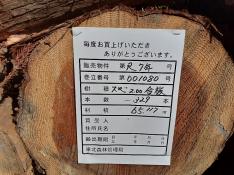 毎度お買上げいただき
ありがとうございます。
販売物件 第 R.7年 号
巻立番号 第 001080 号
樹種 スギ 2.00 合板
本数 329 本
材積 65.117 ㎥
買受人
住所氏名
搬出期限
東北森林管理局